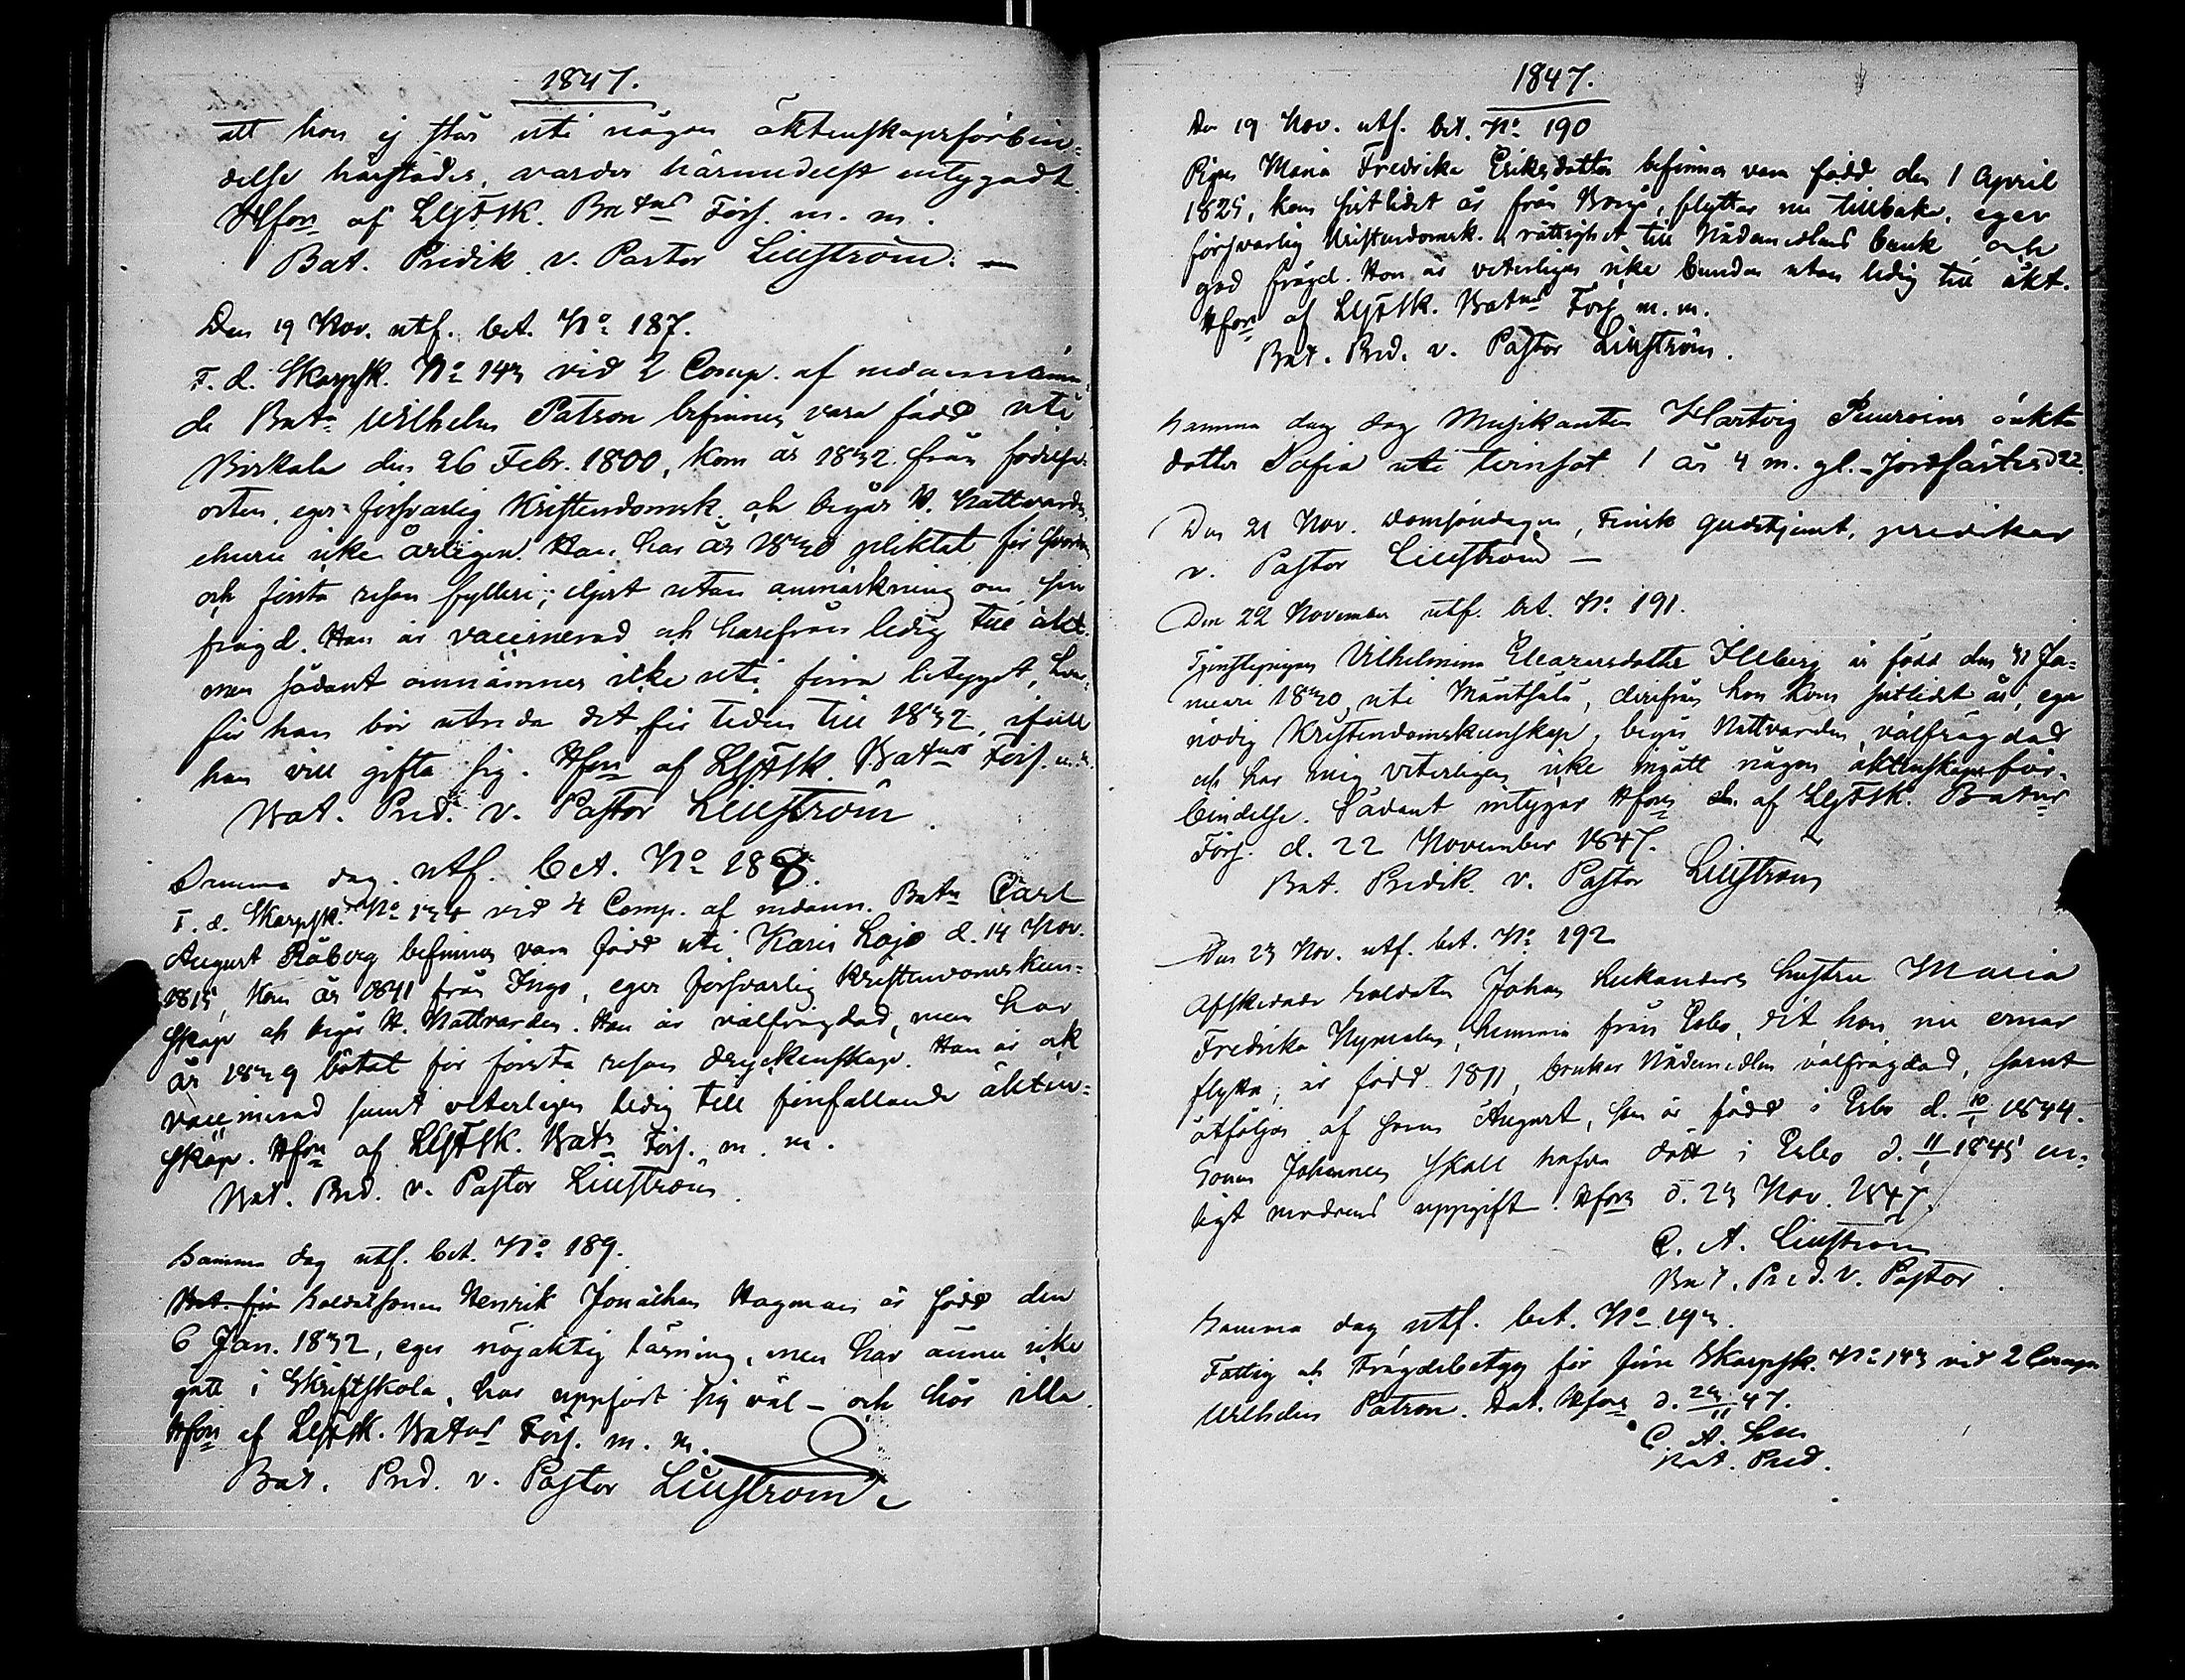 1847.
att hon ej står uti någon äktenskapsförbin-
delse härstädes, varder härmedelst intygadt.
Hfors af LGFSK. Batns Förs. m. m.
Bat. Predik. v. Pastor Liliström. —
Den 19 Nov. utf. bet. No 187.
F. d. Skarpsk. No 143 vid 2 Comp. af nedannämn-
de Batn Wilhelm Patron befinnes vara född uti
Birkala den 26 Febr. 1800, kom år 1832 från födelse-
orten, eger försvarlig Kristendomsk. och begår H. Nattvarden,
ehuru icke årligen. Han har år 1830 pliktat för
och första resan fylleri; eljest utan anmärkning om sin
frägd. Han är vaccinerad och härifrån ledig till äkt.
men sådant omnämnes icke uti förra betyget, hvar-
för han bör utreda det för tiden till 1832, ifall
han vill gifta sig. Hfors af LGFSK. Batns Förs. m. m.
Bat. Pred. v. Pastor Liliström.
Samma dag utf. bet. No 188.
F. d. Skarpsk. No 134 vid 4 Comp. af nedann. Batn Carl
August Råberg befinnes vara född uti Karis Lojo d. 14 Nov.
1815, kom år 1841 från Ingo, eger försvarlig kristendomskun-
skap och begår H. Nattvarden. Han är välfrägdad, men har
år 1839 bötat för första resan dryckenskap. Han är ock
vaccinerad samt veterligen ledig till förefallande äkten-
skap. Hfors af LGFSK. Batns Förs. m. m.
Bat. Pred. v. Pastor Liliström.
Samma dag utf. bet. No 189.
Bet. för Soldatsonen Henrik Jonathan Hagman är född den
6 Jan. 1832, eger nöjaktig läsning, men har ännu icke
gått i Skriftskola, har uppfört sig väl – och hör illa.
Hfors af LGFSK. Batns Förs. m. m.
Bat. Pred. v. Pastor Liliström
1847.
Den 19 Nov. utf. bet. No 190
Pigan Maria Fredrika Eriksdotter befinnes vara född den 1 April
1825, kom sistlidet år från Borgå, flyttar nu tillbaka, eger
försvarlig Kristendomsk. rättighet till Nådemedlens bruk och
god frägd. Hon är veterligen icke bunden utan ledig till äkt.
Hfors af LGFSK. Batns Förs. m. m.
Bat. Pred. v. Pastor Liliström.
Samma dag dog Musikanten Hartvig äkta
dotter Sofia uti 1 år 4 m. gl. – Jordfästes d 22
Den 21 Nov. Domsöndagen, Finsk Gudstjenst, predikar
v. Pastor Liliström —
Den 22 November utf. bet. No 191.
Tjenstepigan Vilhelmina Eleazarsdotter Illberg är född den 31 Ja-
nuari 1830 uti Mäntsälä, derifrån hon kom sistlidet år, eger
nödig Kristendomskunskap, begår Nattvarden, välfrägdad
och har mig veterligen icke ingått någon äktenskapsför-
bindelse. Sådant intygar Hfors af LGFSK. Batns
Förs. d. 22 November 1847.
Bat. Predik. v. Pastor Liliström
Den 23 Nov. utf. bet. No 192
Afskedade Soldaten Johan Lukanders hustru Maria
Fredrika Nyman, hemma från Esbo, dit hon nu ernar
flytta, är född 1811, brukar Nådemedlen välfrägdad, samt
åtföljes af sonen August, som är född i Esbo d. 10/1 1844.
Sonen Johannes skall hafva dött i Esbo d. 11/1 1845 en-
ligt modrens uppgift. Hfors d. 23 Nov. 1847.
C. A. Liliström
Bat. Pred. v. Pastor.
Samma dag utf. bet. No 193.
Fattig och Frägdebetyg för förre Skarpsk. No 143 vid 2 Compn
Wilhelm Patron. Dat. Hfors d. 23/11 47.
C. A. Lm
Bat. Pred.